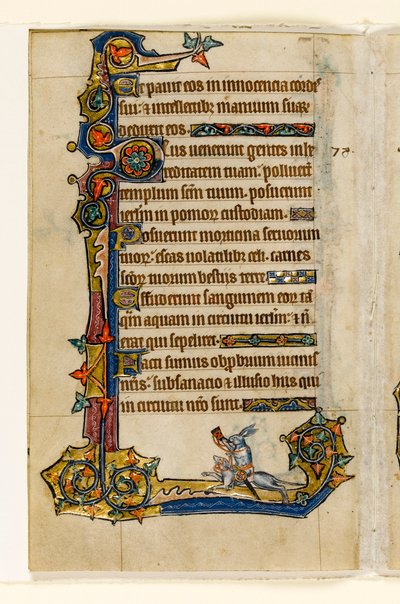 Et pavit eos in innocencia cordis
sui: et intellectibus manuum suarum
deduxit eos.
Deus venerunt gentes in he
reditatem tuam: polluerunt
templum sanctum tuum. posuerunt
ierusalem in pomorum custodiam.
Posuerunt morticina servorum
tuorum: escas volatilibus celi. carnes
sanctorum tuorum bestiis terre
Effuderunt sanguinem eorum ta
quam aquam in circuitu ierusalem: et non
erat qui sepeliret.
Facti sumus obprobrium vicinis
nostris: subsanacio et illusio hiis qui
in circuitu nostro sunt.
78